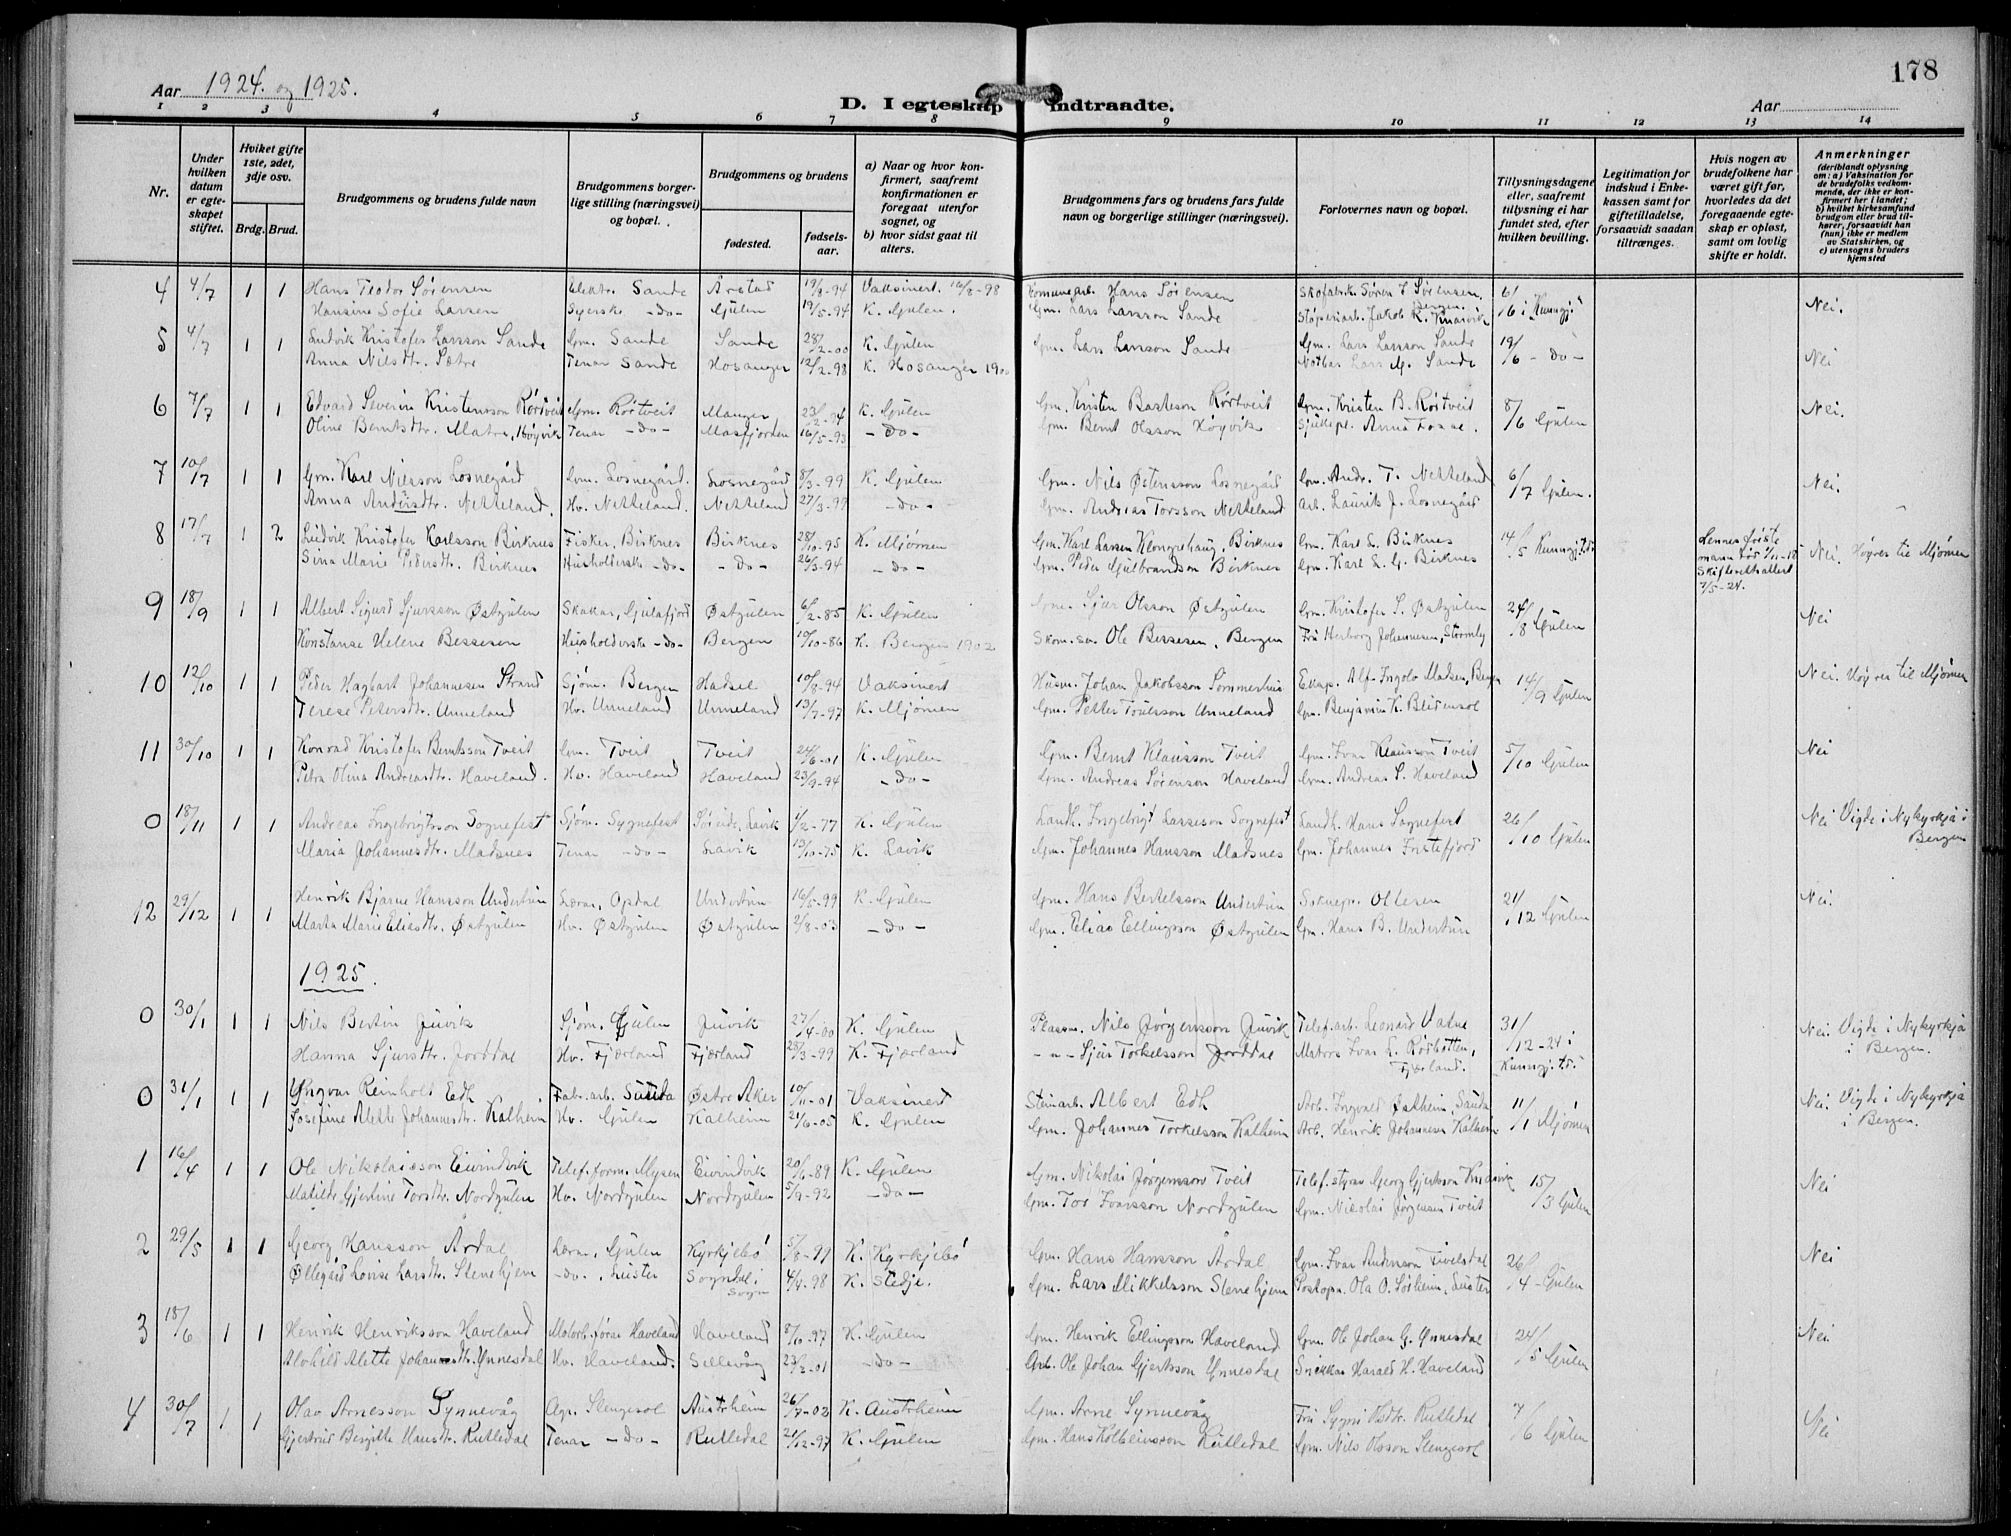 178
Aar 1924. og 1925.
D. I egteskap indtraadte.
Aar
1 2 3 4 5 6 7 8 9 10 11 12 13 14
Nr.
Under hvilken datum er egteskapet stiftet.
Hviket gifte 1ste, 2det, 3dje osv.
Brdg. Brud.
Brudgommens og brudens fulde navn
Brudgommens borgerlige stilling (næringsvei) og bopæl.
Brudgommens og brudens
fødested. fødselsaar.
a) Naar og hvor konfirmert, saafremt konfirmationen er foregaat utenfor sognet, og
b) hvor sidst gaat til alters.
Brudgommens fars og brudens fars fulde navn og borgerlige stillinger (næringsvei).
Forlovernes navn og bopæl.
Tillysningsdagene eller, saafremt tillysning ei har fundet sted, efter hvilken bevilling.
Legitimation for indskud i Enkekassen samt for giftetilladelse, forsaavidt saadan tiltrænges.
Hvis nogen av brudefolkene har været gift før, hvorledes da det foregaaende egteskap er opløst, samt om lovlig skifte er holdt.
Anmerkninger
(deriblandt oplysning om: a) Vaksination for de brudefolks vedkommende, der ikke er konfirmert her i landet; b) hvilket kirkesamfund brudgom eller brud tilhører, forsaavidt han (hun) ikke er medlem av Statskirken, og c) utensogns bruders hjemsted
4 4/7 1 1 Hans Teodor Sørensen Elektr. Sande Arstad 19/8-94 Vaksinert. 16/8-98 Komunearb. Hans Sørensen Skofabrik. Søren T. Sørensen, Bergen 6/6 i Kunngj. Nei.
Hansine Sofie Larsen Syerske -do- Gulen 19/5-94 K. Gulen. Gm. Lars Larsson Sande Støperiarb. Jakob R. Knarvik
5 4/7 1 1 Ludvik Kristofer Larsson Sande Gm. Sande Sande 28/2-00 K. Gulen Gm. Lars Larsson Sande Gm. Lars Larsson Sande 19/6 -do- Nei
Anna Nilsdtr. Sætre Tenar Sande Hosanger 12/2-98 K. Hosanger Lars M. Sande
6 7/7 1 1 Edvard Severin Kristensson Rörtveit Gm. Rörtveit Manger 23/2-94 K. Gulen Gm. Kristen Basteson Rörtveit Gm. Kristen B. Rörtveit 8/6 Gulen Nei.
Oline Berntsdtr. Matre, Höyvik Tenar -do- Masfjorden 16/5-93 -do- Gm. Bernt Olsson Höyvik Anna
7 10/7 1 1 Gm. Karl Nilsson Losnegård Gm. Losnegård. Losnegård 8/3-99 K. Gulen Gm. Nils Östensson Losnegård Gm. Andr. T. Netteland 6/7 Gulen. Nei.
Anna Andersdtr. Netteland. Hv. Netteland. Netteland 27/3-99 -do- Gm. Andreas Torsson Netteland Arb. Laurik J. Losnegård
8 17/7 1 2 Ludvik Kristofer Karlsson Birknes Fisker, Birknes Birknes 28/10-95 K. Mjömen Gm. Karl Larsen Birknes Gm. Karl L. Birknes 14/5 Kunngj. Hennes förste mann död 1/11-18 Skifterettsattest 7/5-24. Nei. Höyrer til Mjömen
Sina Marie Pedersdtr. Birknes Husholderske -do- -do- 26/3-94 -do- Gm. Peder Gulbrandson Birknes Gm. Karl L. G. Birknes
9 18/9 1 1 Albert Sigurd Sjursson Østgulen Skakar, Gulafjord Østgulen 6/2-85 K. Gulen Gm. Sjur Olsson Østgulen Gm. Kristofer S. Østgulen 24/8 Gulen Nei
Konstanse Helene Bessesen Husholderske -do- Bergen 10/10-86 K. Bergen 1902 Skom. sv. Ole Bessesen, Bergen Fru Herborg Johannesen, Stormly
10 12/10 1 1 Peder Hagbart Johannesen Strand Sjöm. Bergen Hadsel 10/8-94 Vaksinert Husm. Johan Jakobsson Sommerhus Alf Ingolv Madsen, Bergen 14/9 Gulen Nei. Höyrer til Mjömen
Terese Petersdtr. Unneland Hv. Unneland Unneland 13/7-97 K. Mjömen Gm. Petter Unneland Gm. Benjamin K. Blidensol
11 30/10 1 1 Konrad Kristofer Berntsson Tveit Gm. Tveit Tveit 24/6-01 K. Gulen Gm. Bernt Klausson Tveit Gm. Ivar Klausson Tveit 5/10 Gulen Nei
Petra Olina Andreasdtr. Haveland. Hv. Haveland Haveland 23/9-94 -do- Gm. Andreas Sörenson Haveland Gm. Andreas S. Haveland
0 18/11 1 1 Andreas Ingebrigtsson Sognefest Sjöm. Sygnefest Söreide, Lavik 1/2-77 K. Gulen Landh. Ingebrigt Lasseson Sognefest Landh. Hans Sognefest 26/10 Gulen Nei. Vigde i Nykyrkja i Bergen
Maria Johannesdtr. Madsnes Tenar -do- Lavik 13/10-75 K. Lavik Gm. Johannes Hansson Madsnes Gm. Johannes Fristefjord
12 29/12 1 1 Henrik Bjarne Hansson Undertun Lærar, Opdal Undertun 16/5-99 K. Gulen Gm. Hans Bertelsson Undertun Soknepr. Ottesen 21/12 Gulen Nei.
Marta Marie Eliasdtr. Østgulen Hv. Østgulen Østgulen 2/8-03 -do- Gm. Elias Ellingsson Østgulen Gm. Hans B. Undertun
1925.
0 30/1 1 1 Nils Bertin Juvik Sjöm. Gulen Juvik 27/4-00 K. Gulen Plassm. Nils Jörgensson Juvik Telef. arb. Leonard Vatne 31/12-24 i Kunngj. Nei. Vigde i Nykyrkja i Bergen.
Hanna Sjursdtr. Jorddal Hv. Fjærland Fjærland 25/3-99 K. Fjærland -"- Sjur Torkelsson Jorddal Matros Ivar L. Rödbotten, Fjærland.
0 31/1 1 1 Yngvar Reinholt Edh Fab. arb. Sauda Østre Aker 10/11-01 Vaksinert Steinarb. Albert Edh Arb. Ingvald Kalheim, Sauda 11/1 Mjömen Nei. Vigde i Nykyrkja i Bergen.
Josefine Alette Johannesdtr. Kalheim Hv. Gulen Kalheim 24/6-05 K. Gulen Gm. Johannes Torkelsson Kalheim Arb. Henrik Johannesen Kalheim
1 16/4 1 1 Ole Nikolaisson Eivindvik Telef. form. Mysen Eivindvik 20/6-89 K. Gulen Gm. Nikolai Jörgensson Tveit Telef. styrar Georg Gjertsson 15/3 Gulen Nei
Matilde Gjertine Torsdtr. Nordgulen Hv. Nordgulen Nordgulen 5/9-92 -do- Gm. Tor Ivarsson Nordgulen Gm. Nicolai Jörgensen Tveit
2 29/5 1 1 Georg Hansson Årdal Lærar, Gulen Kyrkjebö 5/8-99 K. Kyrkjebö Gm. Hans Hansson Årdal Gm. Ivar Anderson 26/4 - Gulen Nei
Ollegård Lovise Larsdtr. Stenehjem -do-, Luster Sogndal i Sogn 4/4-98 K. Stedje. Gm. Lars Mikkelsson Stenehjem Postopn. Ola O. Sörheim, Luster
3 18/6 1 1 Henrik Henriksson Haveland Motorb. förar Haveland Haveland 8/10-97 K. Gulen Gm. Henrik Ellingsson Haveland Gm. Ole Johan G. Ynnesdal 24/5 Gulen Nei.
Alvhild Alette Johannesdtr. Ynnesdal Hv. Haveland. Sellevåg 23/3-01 -do- Arb. Ole Johan Gjertsson Ynnesdal Snikkar Harald H. Haveland
4 30/7 1 1 Olav Arnesson Synnevåg Agr. Stengesol Austrheim 26/7-02 K. Austrheim Gm. Arne Synnevåg Fru Sygni Rutledal 7/6 Gulen Nei
Gjertrud Bergitte Hansdtr. Rutledal Tenar -do- Rutledal 21/12-97 K. Gulen Gm. Hans Kolbeinsson Rutledal Gm. Nils Olsson Stengesol